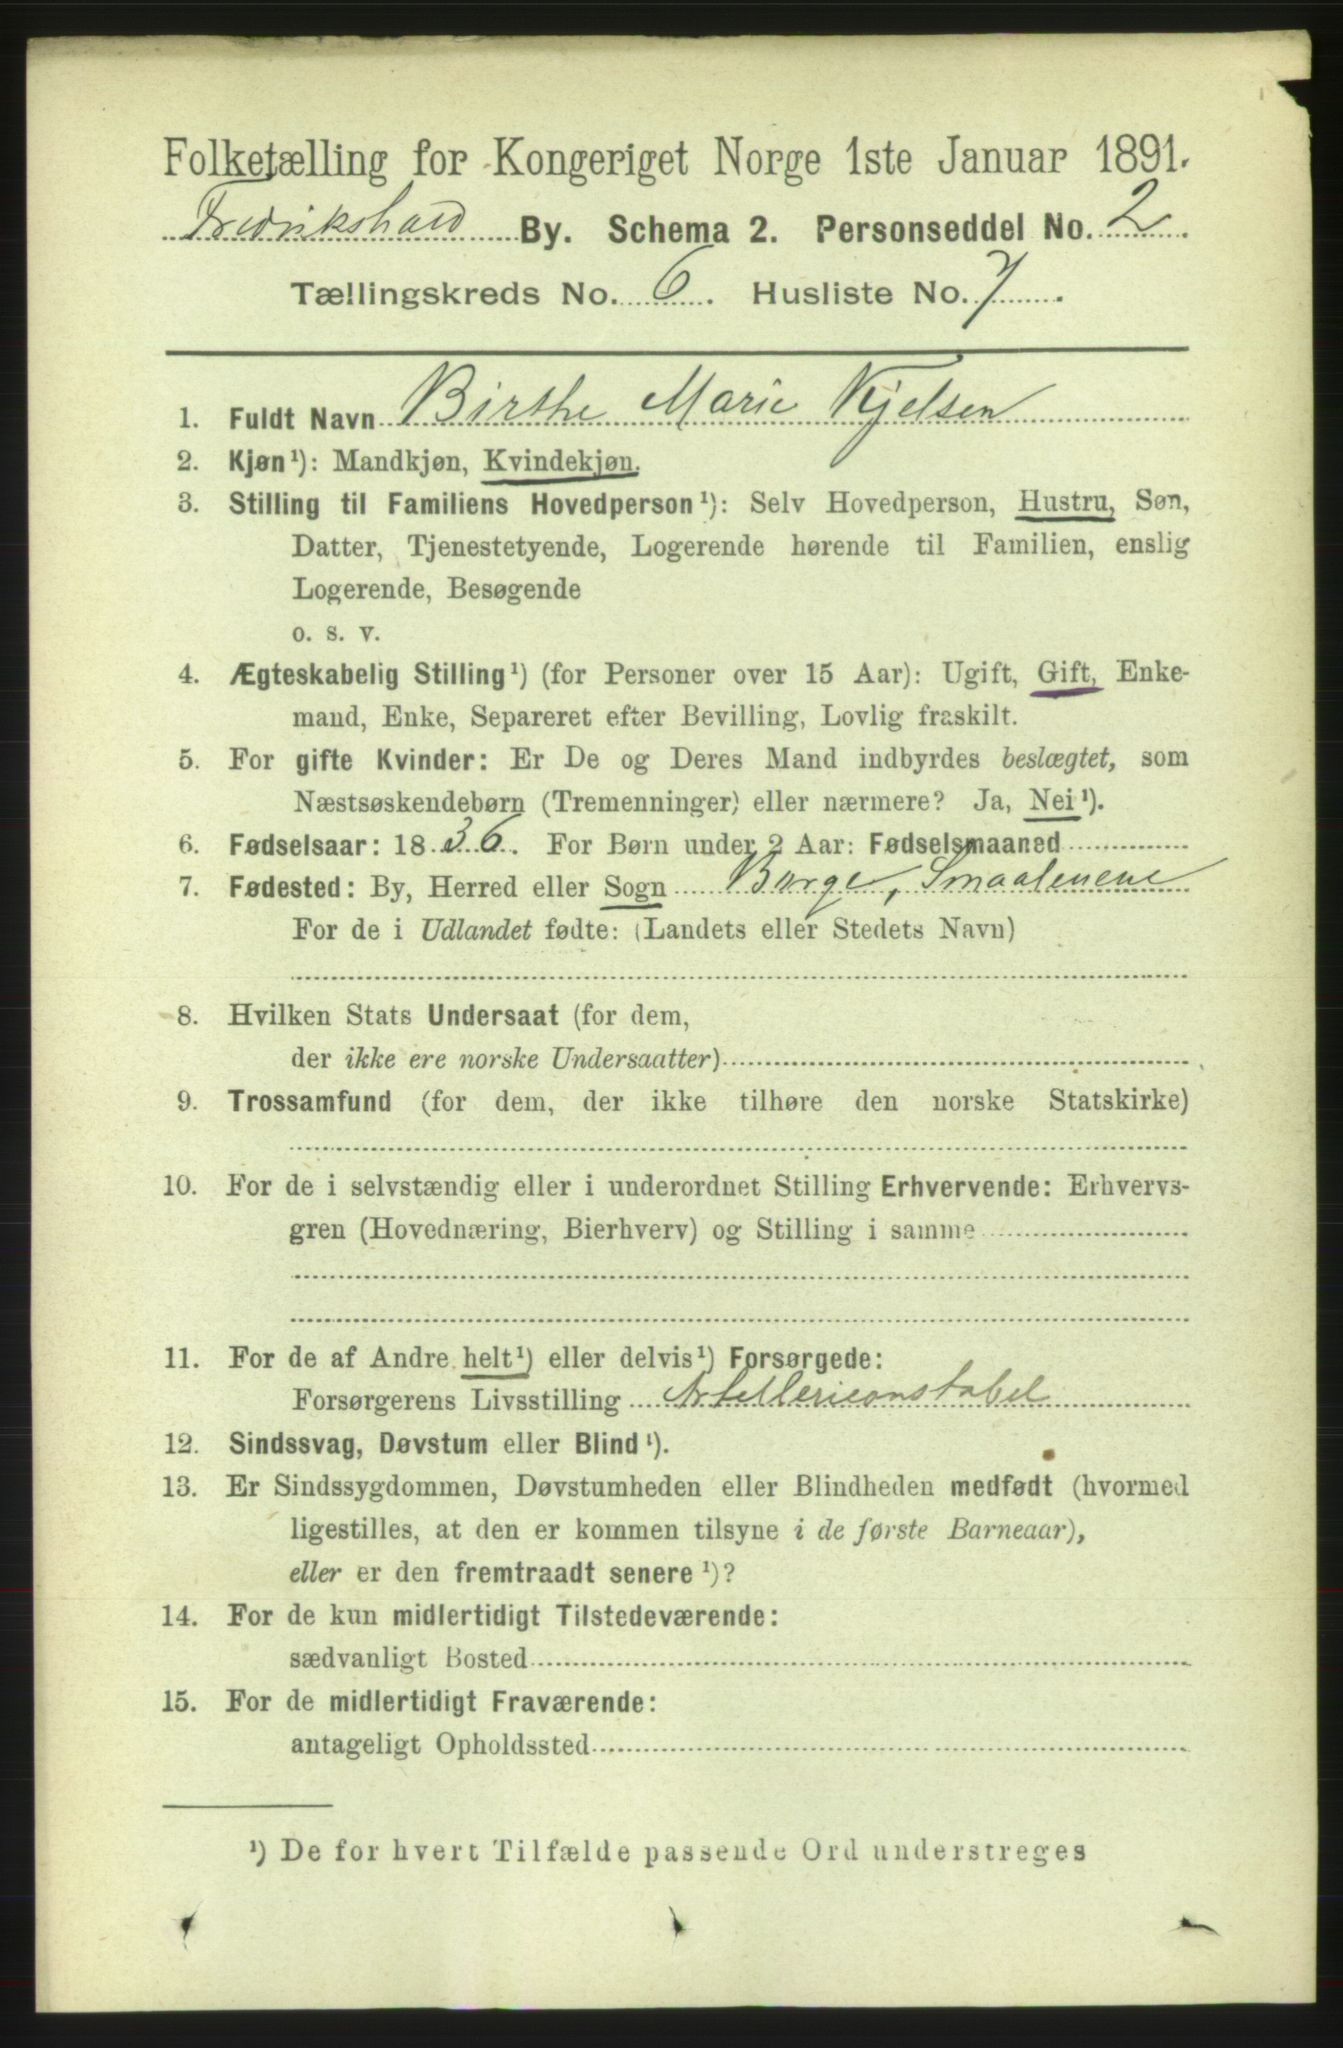 Folketælling for Kongeriget Norge 1ste Januar 1891.
Fredrikshald By. Schema 2. Personseddel No. 2.
Tællingskreds No. 6. Husliste No. 7.
1. Fuldt Navn Birthe Marie Kjelsen
2. Kjøn¹): Mandkjøn, Kvindekjøn.
3. Stilling til Familiens Hovedperson¹): Selv Hovedperson, Hustru, Søn,
Datter, Tjenestetyende, Logerende hørende til Familien, enslig
Logerende, Besøgende
o. s. v.
4. Ægteskabelig Stilling¹) (for Personer over 15 Aar): Ugift, Gift, Enke-
mand, Enke, Separeret efter Bevilling, Lovlig fraskilt.
5. For gifte Kvinder: Er De og Deres Mand indbyrdes beslægtet, som
Næstsøskendebørn (Tremenninger) eller nærmere? Ja, Nei¹).
6. Fødselsaar: 1836. For Børn under 2 Aar: Fødselsmaaned
7. Fødested: By, Herred eller Sogn Borge, Smaalenene
For de i Udlandet fødte: (Landets eller Stedets Navn)
8. Hvilken Stats Undersaat (for dem,
der ikke ere norske Undersaatter)
9. Trossamfund (for dem, der ikke tilhøre den norske Statskirke)
10. For de i selvstændig eller i underordnet Stilling Erhvervende: Erhvervs-
gren (Hovednæring, Bierhverv) og Stilling i samme
11. For de af Andre helt¹) eller delvis¹) Forsørgede:
Forsørgerens Livsstilling Artillericonstabel
12. Sindssvag, Døvstum eller Blind¹).
13. Er Sindssygdommen, Døvstumheden eller Blindheden medfødt (hvormed
ligestilles, at den er kommen tilsyne i de første Barneaar),
eller er den fremtraadt senere¹)?
14. For de kun midlertidigt Tilstedeværende:
sædvanligt Bosted
15. For de midlertidigt Fraværende:
antageligt Opholdssted
¹) De for hvert Tilfælde passende Ord understreges